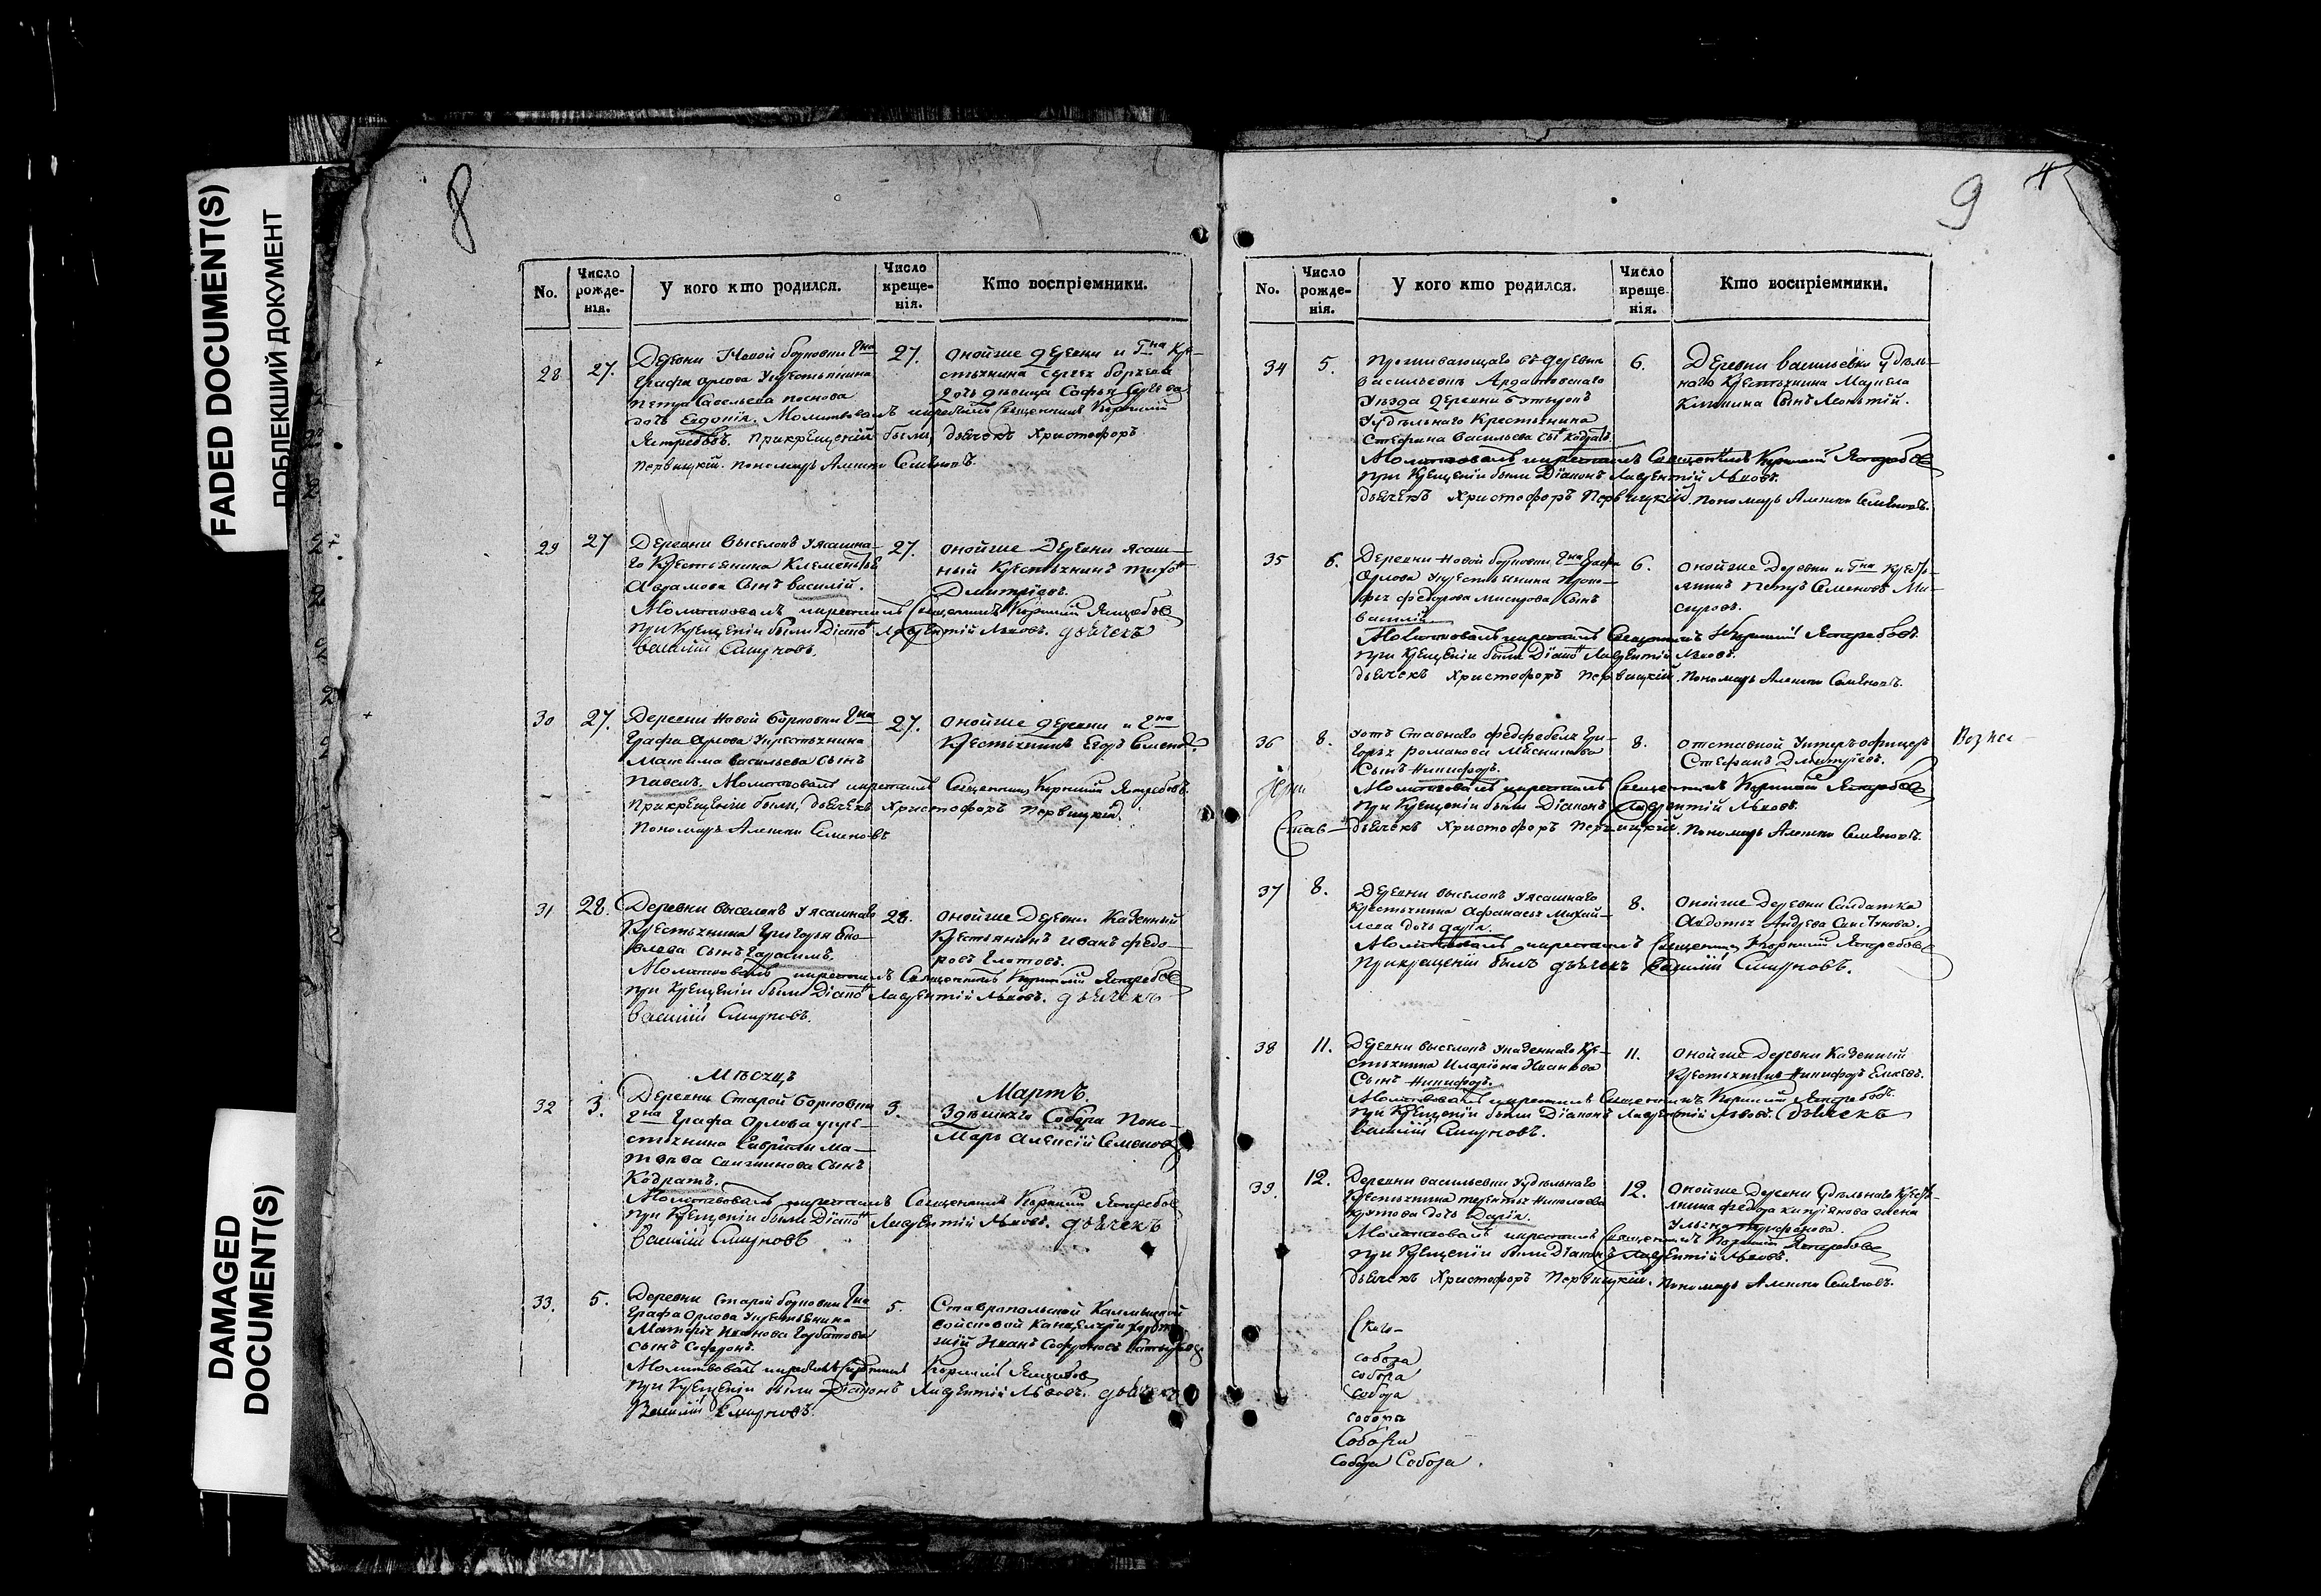 FADED DOCUMENT(S)
ПОБЛЕКШИЙ ДОКУМЕНТ
DAMAGED
DOCUMENT(S)
8
No.
Число рожденія.
У кого кто родился.
Число крещенія.
Кто воспріемники.
28
27.
Деревни Новой борковки Гна
Графа орлова укрестьянина
Петра Савельева
дочь Евдокія. Молитвовалъ икрестилъ Священникъ Корнилій
Ястребовъ. Прикрещеніи были, дьячекъ Христофоръ
Первицкій. пономарь Алексей Семеновъ.
27.
онойже деревни и Гна Кре-
стьянина Сергея
дочь девица Софья
29
27
Деревни Выселокъ уясашна-
го Крестьянина Клементья
Абрамова Сынъ василій.
Молитвовалъ икрестилъ Священникъ Корнилій Ястребовъ
при Крещеніи были Діаконъ Лаврентій Львовъ. дьячекъ
Василій Смирновъ.
27.
онойже Деревни ясаш-
ный Крестьянинъ
Дмитріевъ.
30
27.
Деревни Новой борковки Гна
Графа орлова укрестьянина
Максима васильева Сынъ
Павелъ. Молитвовалъ икрестилъ Священникъ Корнилій Ястребовъ.
Прикрещеніи были, дьячекъ Христофоръ Первицкій.
Пономарь Алексей Семеновъ
27.
онойже деревни и Гна
Крестьянинъ Егоръ
31
28.
Деревни Выселокъ уясашнаго
Крестьянина Григорья Яко-
влева Сынъ Герасимъ.
Молитвовалъ икрестилъ Священникъ Корнилій Ястребовъ
при Крещеніи были Діаконъ Лаврентій Львовъ. дьячекъ
Василій Смирновъ.
28.
онойже Деревни Казенный
Крестьянинъ Иванъ Федо-
ровъ
Мѣсяцъ
Мартъ.
32
3.
Деревни Старой борковки
Гна Графа Орлова укре-
стьянина Гаврилы Ма-
твѣва Сынъ
Кодратъ.
Молитвовалъ икрестилъ Священникъ Корнилій Ястребовъ
при Крещеніи были Діаконъ Лаврентій Львовъ. дьячекъ
Василій Смирновъ
3.
Здѣшняго Собора Поно-
марь Алексій Семеновъ
33.
5.
Деревни Старой борковки Гна
Графа Орлова укрестьянина
Матфея Иванова Горбатова
Сынъ Софронъ.
Молитвовалъ икрестилъ Священникъ Корнилій Ястребовъ
при Крещеніи были Діаконъ Лаврентій Львовъ. дьячекъ
Василій Смирновъ.
5.
Ставропольской Калмыцкой
войсковой Канцеляріи
Иванъ Софроновъ
9
No.
Число рожденія.
У кого кто родился.
Число крещенія.
Кто воспріемники.
34
5.
Проживающаго въ деревни
васильевки Ардатовскаго
Уезда деревни
Удѣльнаго Крестьянина
Стефана Васильева Сынъ Кодратъ.
Молитвовалъ икрестилъ Священникъ Корнилій Ястребовъ
при Крещеніи были Діаконъ Лаврентій Львовъ.
дьячекъ Христофоръ Первицкій. Пономарь Алексей Семеновъ.
6.
Деревни васильевки Удѣль-
наго Крестьянина
Сынъ Леонтій.
35
6.
Деревни Новой борковки Гна Графа
Орлова укрестьянина Проко-
фья Федорова Мисюрова Сынъ
василій
Молитвовалъ икрестилъ Священникъ Корнилій Ястребовъ.
при Крещеніи были Діаконъ Лаврентій Львовъ.
дьячекъ Христофоръ Первицкій. Пономарь Алексей Семеновъ.
6.
онойже Деревни и Гна Крестья-
янинъ Петръ Семеновъ Ми-
сюровъ.
36
8.
уотставнаго Федфебеля Гри-
горья романова Мясникова
Сынъ Никифоръ.
Молитвовалъ икрестилъ Священникъ Корнилій Ястребовъ
при Крещеніи были Діаконъ Лаврентій Львовъ.
дьячекъ Христофоръ Первицкій. Пономарь Алексей Семеновъ.
8.
отставной Унтеръ офицеръ
Стефанъ Дмитріевъ.
Вознес-
Став-
37
8.
Деревни Выселокъ уясашнаго
Крестьянина Афанасья Михай-
лова дочь дарія.
Молитвовалъ икрестилъ Священникъ Корнилій Ястребовъ
Прикрещеніи былъ дьячекъ Василій Смирновъ.
8.
онойже деревни Салдатка
Авдотья Андреева
38
11.
Деревни Выселокъ указеннаго Кре-
стьянина Иларіона Иванова
Сынъ Никифоръ.
Молитвовалъ икрестилъ Священникъ Корнилій Ястребовъ.
при Крещеніи были Діаконъ Лаврентій Львовъ. дьячекъ
Василій Смирновъ.
11.
онойже Деревни Казенный
Крестьянинъ Никифоръ
39.
12.
Деревни васильевки Удѣльнаго
Крестьянина терентья Николаева
дочь Дарія.
Молитвовалъ икрестилъ Священникъ Корнилій Ястребовъ
при Крещеніи были Діаконъ Лаврентій Львовъ.
дьячекъ Христофоръ Первицкій. Пономарь Алексей Семеновъ.
12.
онойже Деревни Удѣльнаго Кресть-
янина федора кипріянова жена
Ульяна трифонова.
скаго-
собора
собора
собора
собора
Собора
Собора Собора.